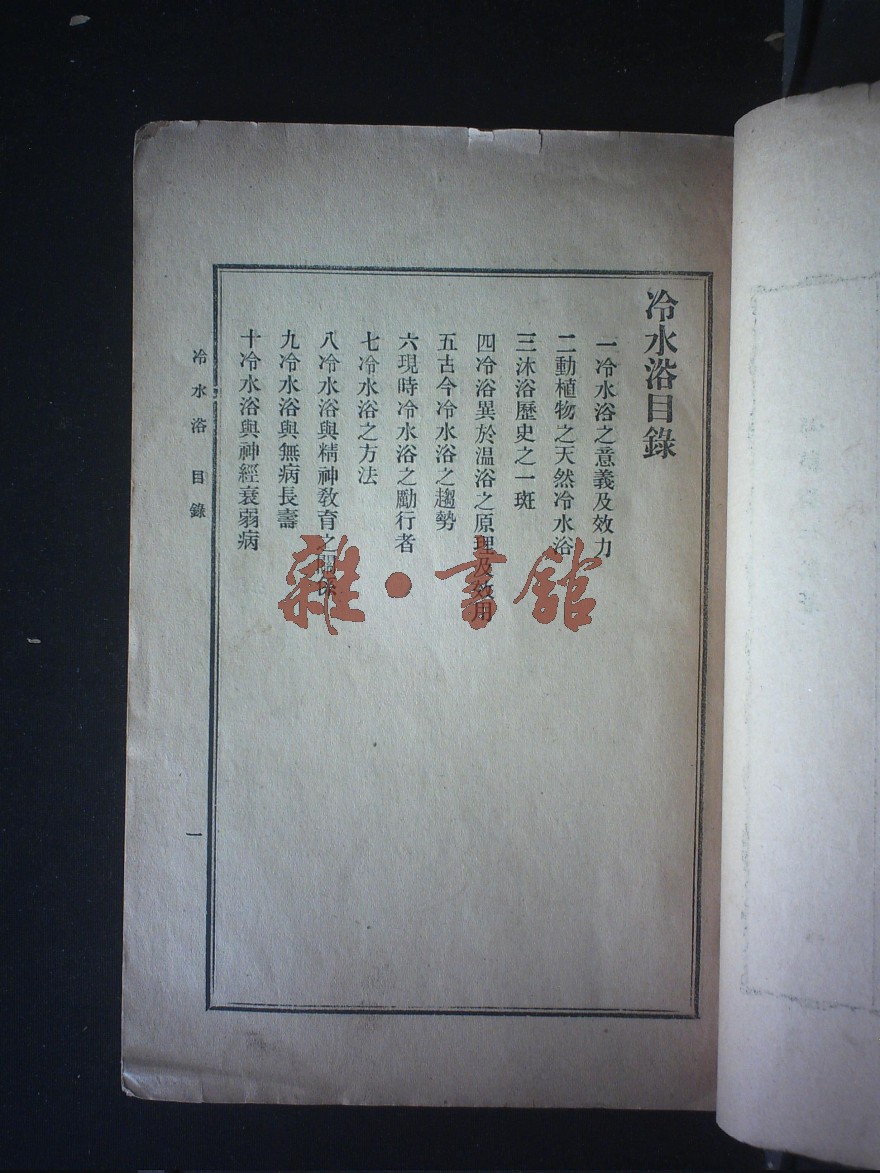 冷水浴目錄
一冷水浴之意義及效力
二動植物之天然冷水浴
三沐浴歷史之一斑
四冷浴異於温浴之原理及效用
五古今冷水浴之趨勢
六現時冷水浴之勵行者
七冷水浴之方法
八冷水浴與精神教育之關係
九冷水浴與無病長壽
十冷水浴與神經衰弱病
冷水浴 目錄
一
雜·書館